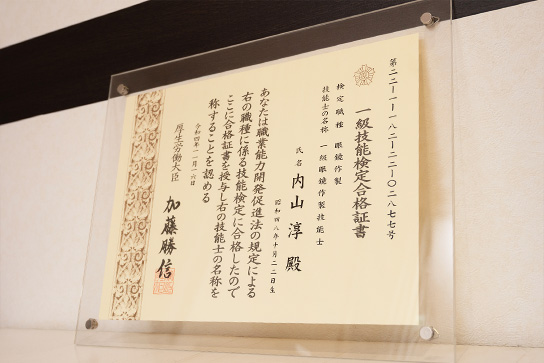 第二二一一一一八二一二二一〇二八七七号
一級技能検定合格証書
検定職種 眼鏡作製
技能士の名称 一級眼鏡作製技能士
氏名 内山淳殿
昭和四八年十月二二日生
あなたは職業能力開発促進法の規定による
右の職種に係る技能検定に合格したので
ここに合格証書を授与し右の技能士の名称を
称することを認める
令和四年一一月一六日
厚生労働大臣 加藤勝信